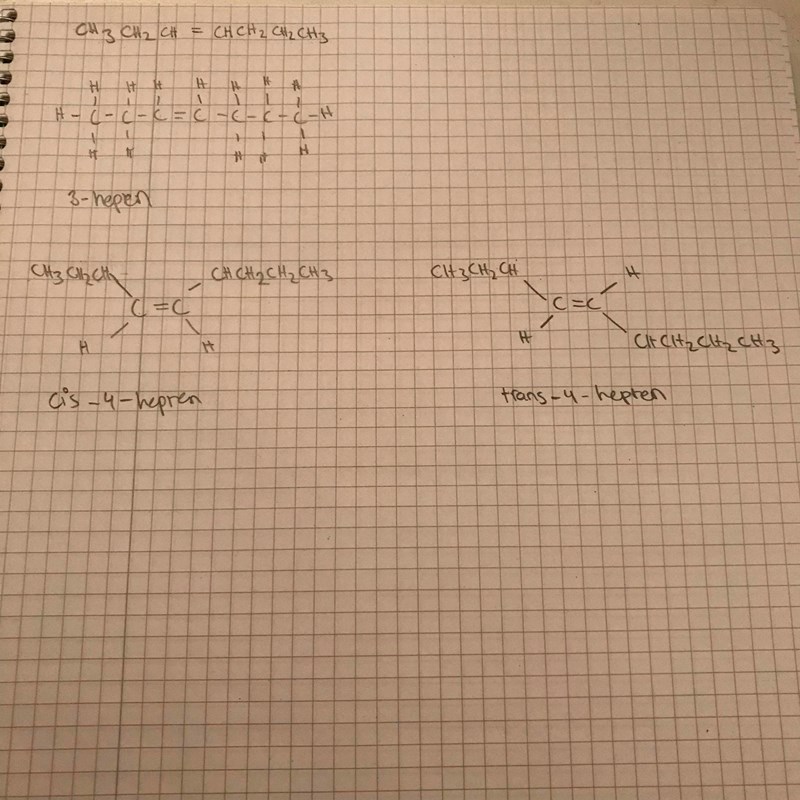 CH3CH2CH = CHCH2CH2CH3
H H H H H H H
H - C - C - C = C - C - C - C - H
H H H H H
3-hepen
CH3CH2CH CHCH2CH2CH3
C = C
H H
cis-4-hepten
CH3CH2CH H
C = C
H CHCH2CH2CH3
trans-4-hepten